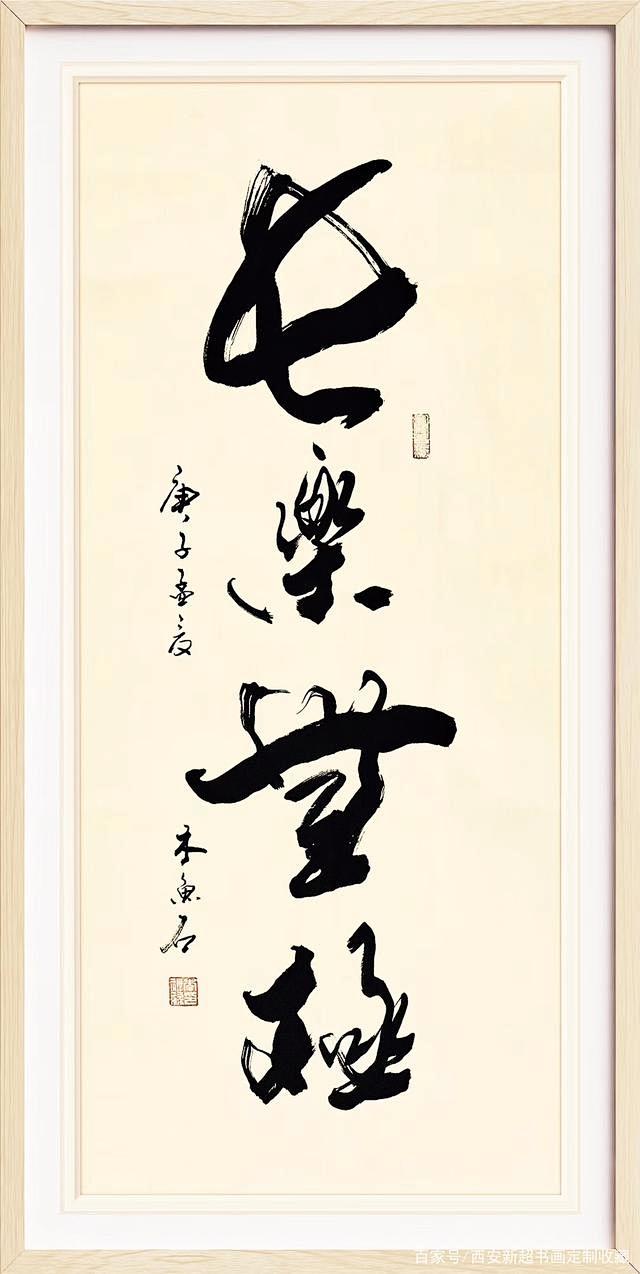 長樂無極
庚子孟夏
木魚石
百家号/西安新超书画定制收藏